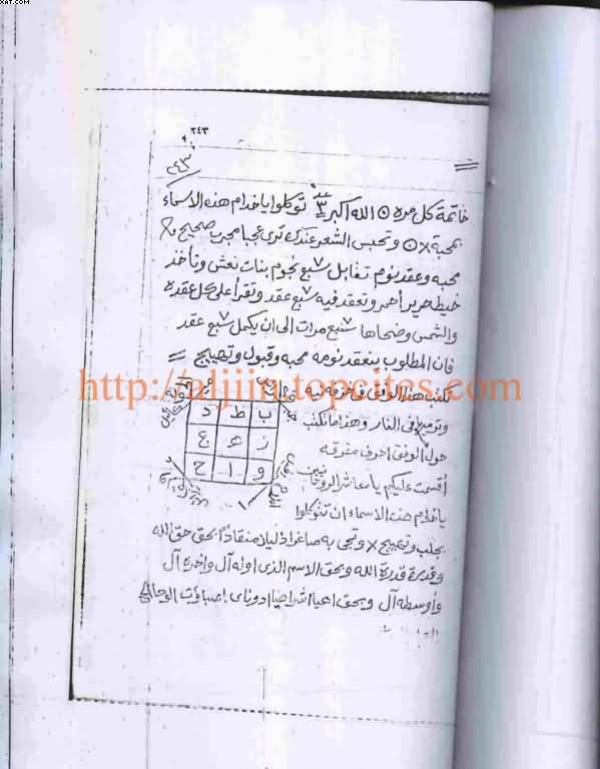 XAT.COM
٢٤٣
٢٤٣
خاتمة كل مره ⊙ الله اكبر ٣ توكلوا يا خدام هذه الاسماء
بمحبة × ⊙ وتحبس الشعر عندك ترى عجبا مجرب صحيح
محبه وعقد نوم تقابل سبع نجوم بنات نعش وتأخذ
خيط حرير أحمر وتعقد فيه سبع عقد وتقرأ على كل عقده
والشمس وضحاها سبع مرات الى ان يكمل سبع عقد
فان المطلوب ينعقد نومه محبه وقبول وتهييج
تكتب هذا الوفق
http://aljiin.topcites.com
وترميه فى النار وهذا ما تكتب
حول الوفق احرف مفرقه
ب ط د
ز ه ج
و ا ح
أقسمت عليكم يا معاشر الروحانيين
يا خدام هذه الاسماء ان تتوكلوا
بجلب وتهييج × وتجى به صاغرا ذليلا منقادا بحق حق الله
وقدرة قدرة الله وبحق الاسم الذى اوله آل واخره آل
وأوسطه آل وبحق اهيا اشراهيا ادوناى اصباؤت